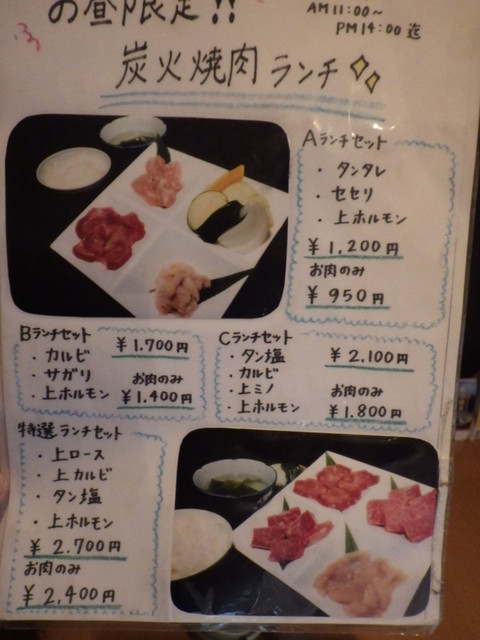 お昼限定!!
AM 11:00~
PM 14:00 迄
炭火焼肉ランチ
Aランチセット
・タンタレ
・セセリ
・上ホルモン
¥1,200円
お肉のみ
¥950円
Bランチセット
・カルビ
・サガリ
・上ホルモン
¥1.700円
お肉のみ
¥1.400円
Cランチセット
・タン塩
・カルビ
・上ミノ
・上ホルモン
¥2,100円
お肉のみ
¥1.800円
特選ランチセット
・上ロース
・上カルビ
・タン塩
・上ホルモン
¥2.700円
お肉のみ
¥2,400円